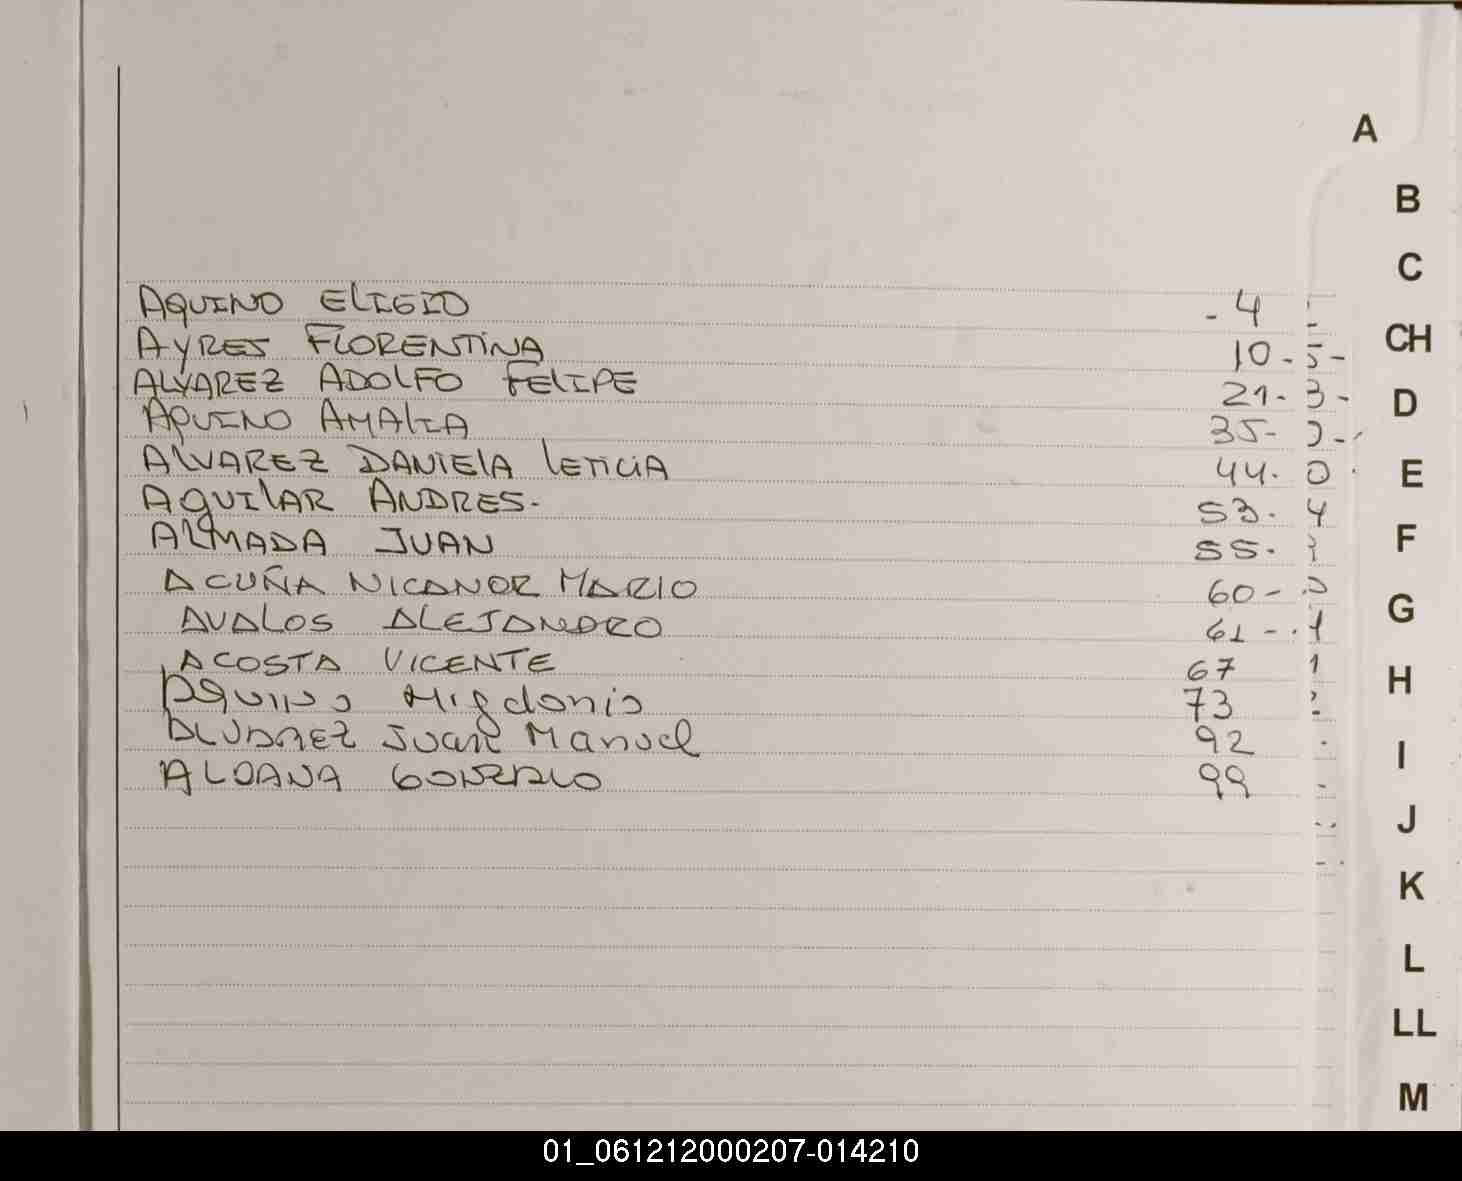 A
B
C
AQUINO ELIGIO - 4
CH
AYRES FLORENTINA 10 -
ALVAREZ ADOLFO FELIPE 21 -
D
AQUINO AMALIA 35 -
ALVAREZ DANIELA LETICIA 44 -
E
AGUILAR ANDRES. 53 -
ALMADA JUAN 55 -
F
ACUÑA NICANOR MARIO 60 -
AVALOS ALEJANDRO 61 -
G
ACOSTA VICENTE 67
H
AQUINO Migdonio 73
ALVAREZ Juan Manuel 92
I
ALDANA GONZALO 99
J
K
L
LL
M
01_061212000207-014210